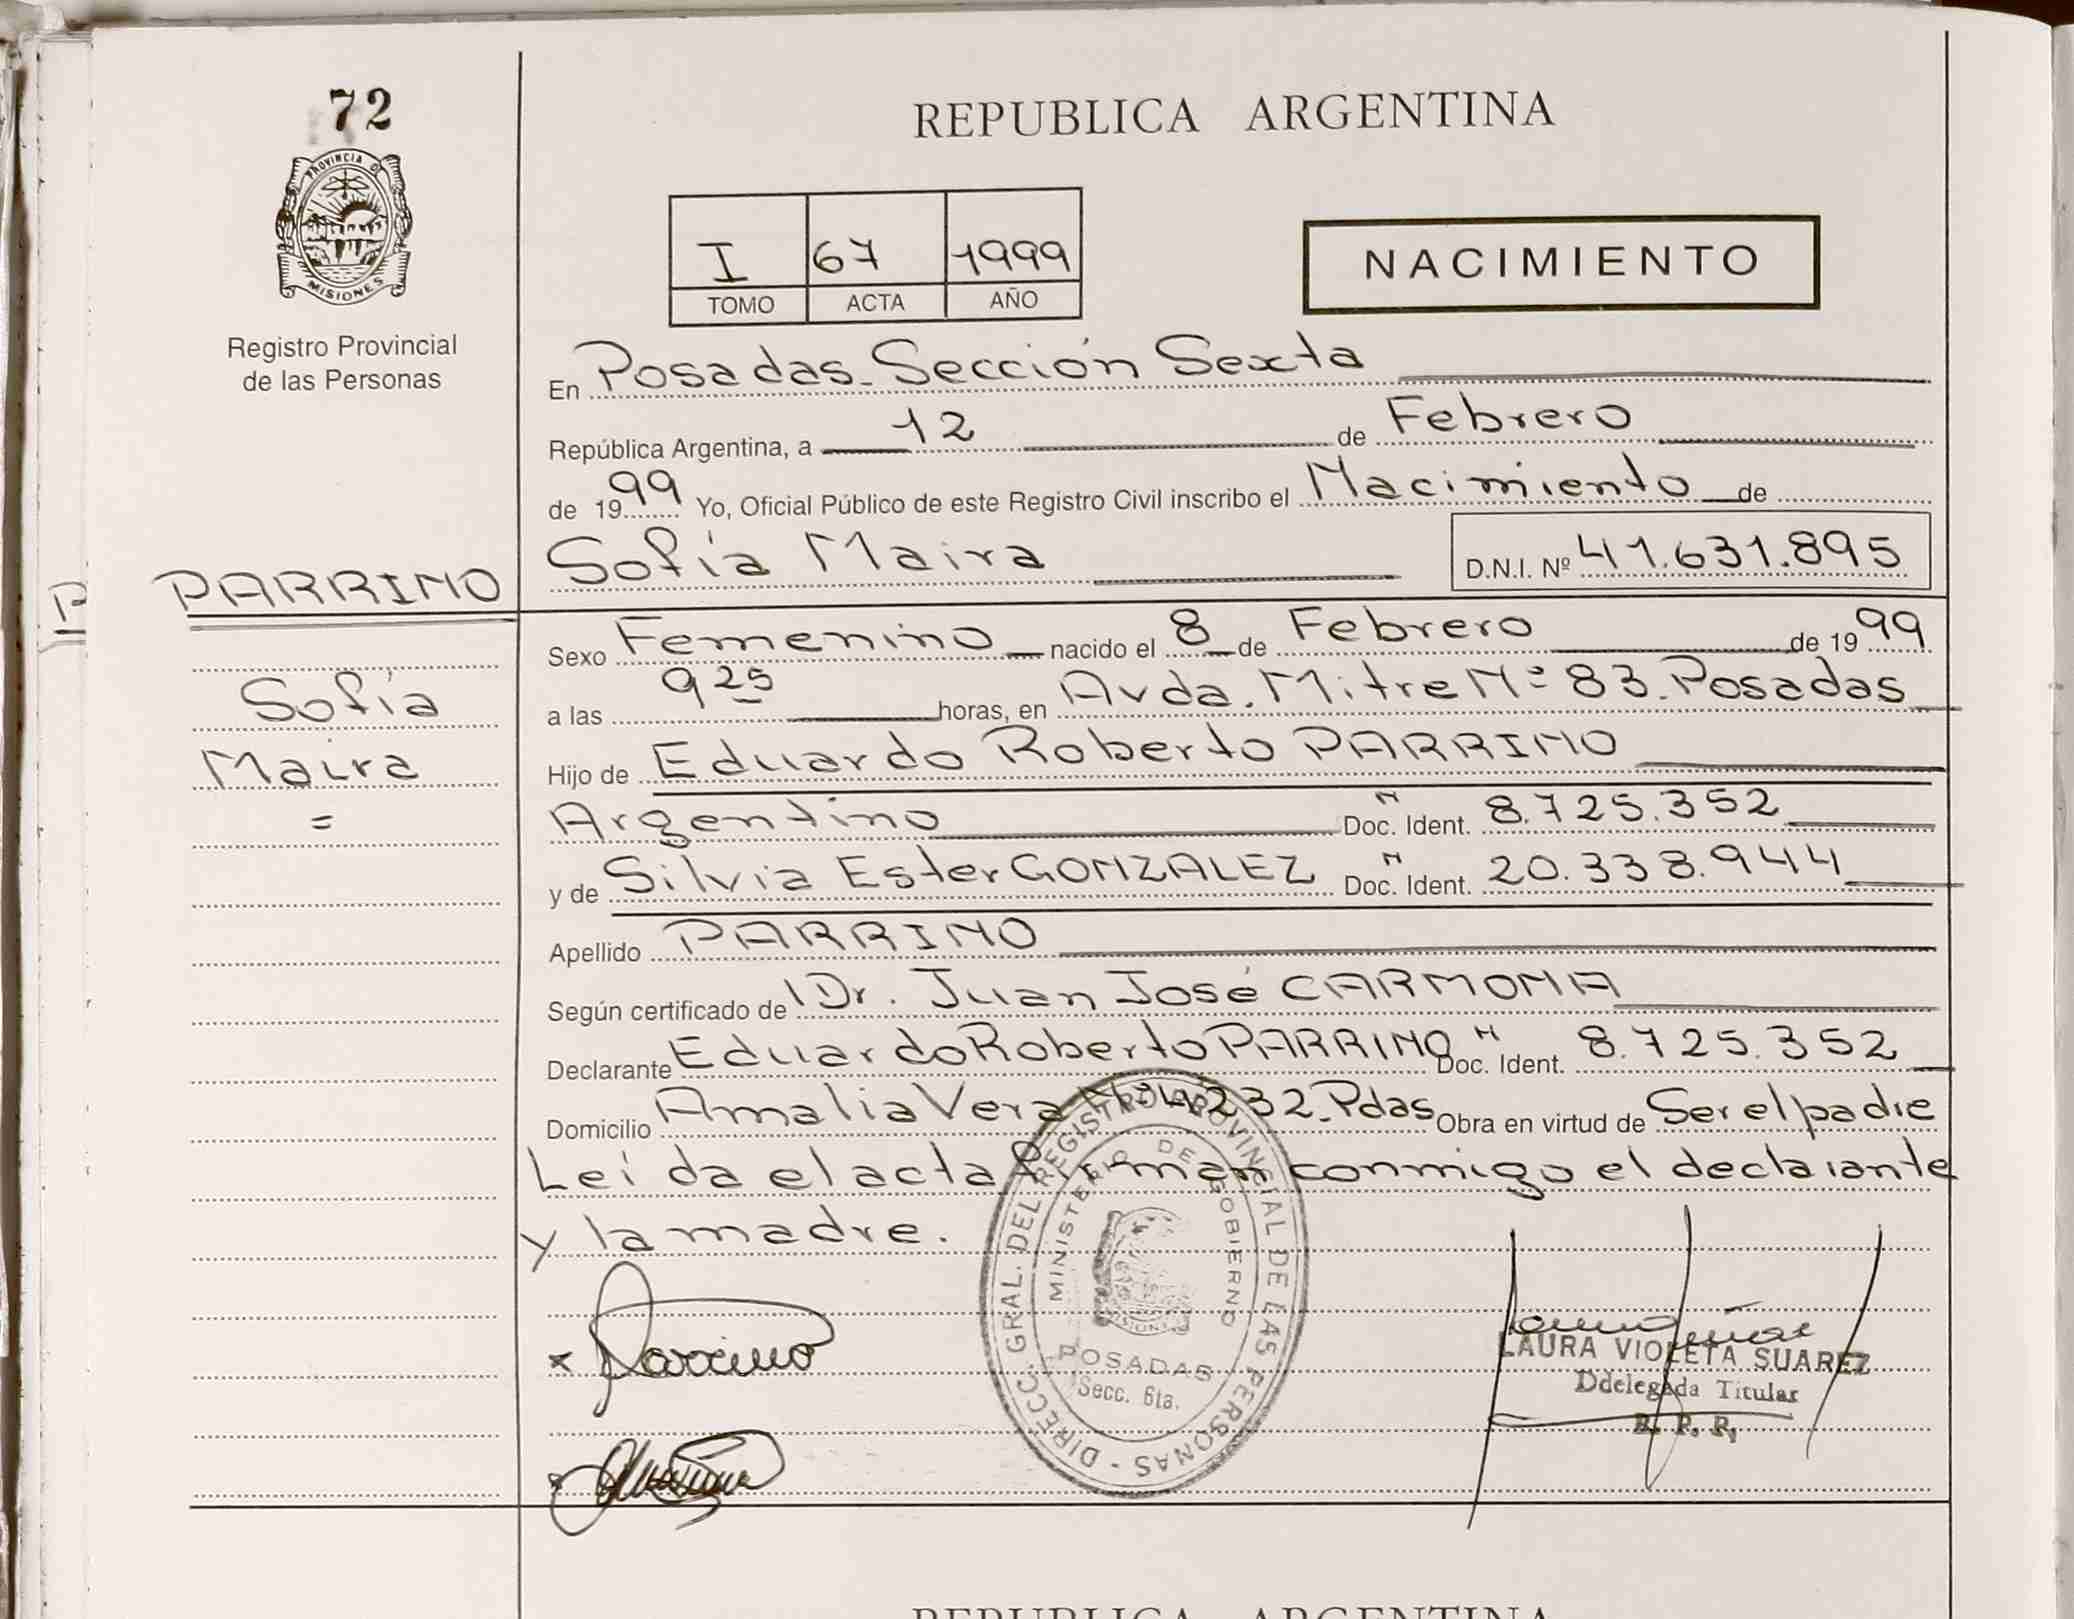 72
PROVINCIA DE
MISIONES
Registro Provincial
de las Personas
PARRINO
Sofía
Maira
=
P
REPUBLICA ARGENTINA
I 67 1999
TOMO ACTA AÑO
NACIMIENTO
En Posadas_Sección Sexta
República Argentina, a 12 de Febrero
de 1999 Yo, Oficial Público de este Registro Civil inscribo el Nacimiento de
Sofía Maira D.N.I. Nº 41.631.895
Sexo Femenino nacido el 8 de Febrero de 1999
a las 9 25 horas, en Avda. Mitre Nº 83_Posadas
Hijo de Eduardo Roberto PARRINO
Argentino Doc. Ident. N 8.725.352
y de Silvia Ester GONZALEZ Doc. Ident. N 20.338.944
Apellido PARRINO
Según certificado de Dr. Juan José CARMONA
Declarante Eduardo Roberto PARRINO Doc. Ident. N 8.725.352
Domicilio Amalia Vera Nº 4232_Pdas Obra en virtud de Ser el padre
Leída el acta firman conmigo el declarante
y la madre.
x Parrino
DIRECC. GRAL. DEL REGISTRO PROVINCIAL DE LAS PERSONAS -
MINISTERIO DE GOBIERNO
MISIONES
POSADAS
Secc. 6ta.
LAURA VIOLETA SUAREZ
Ddelegada Titular
R. P. P.
REPUBLICA ARGENTINA